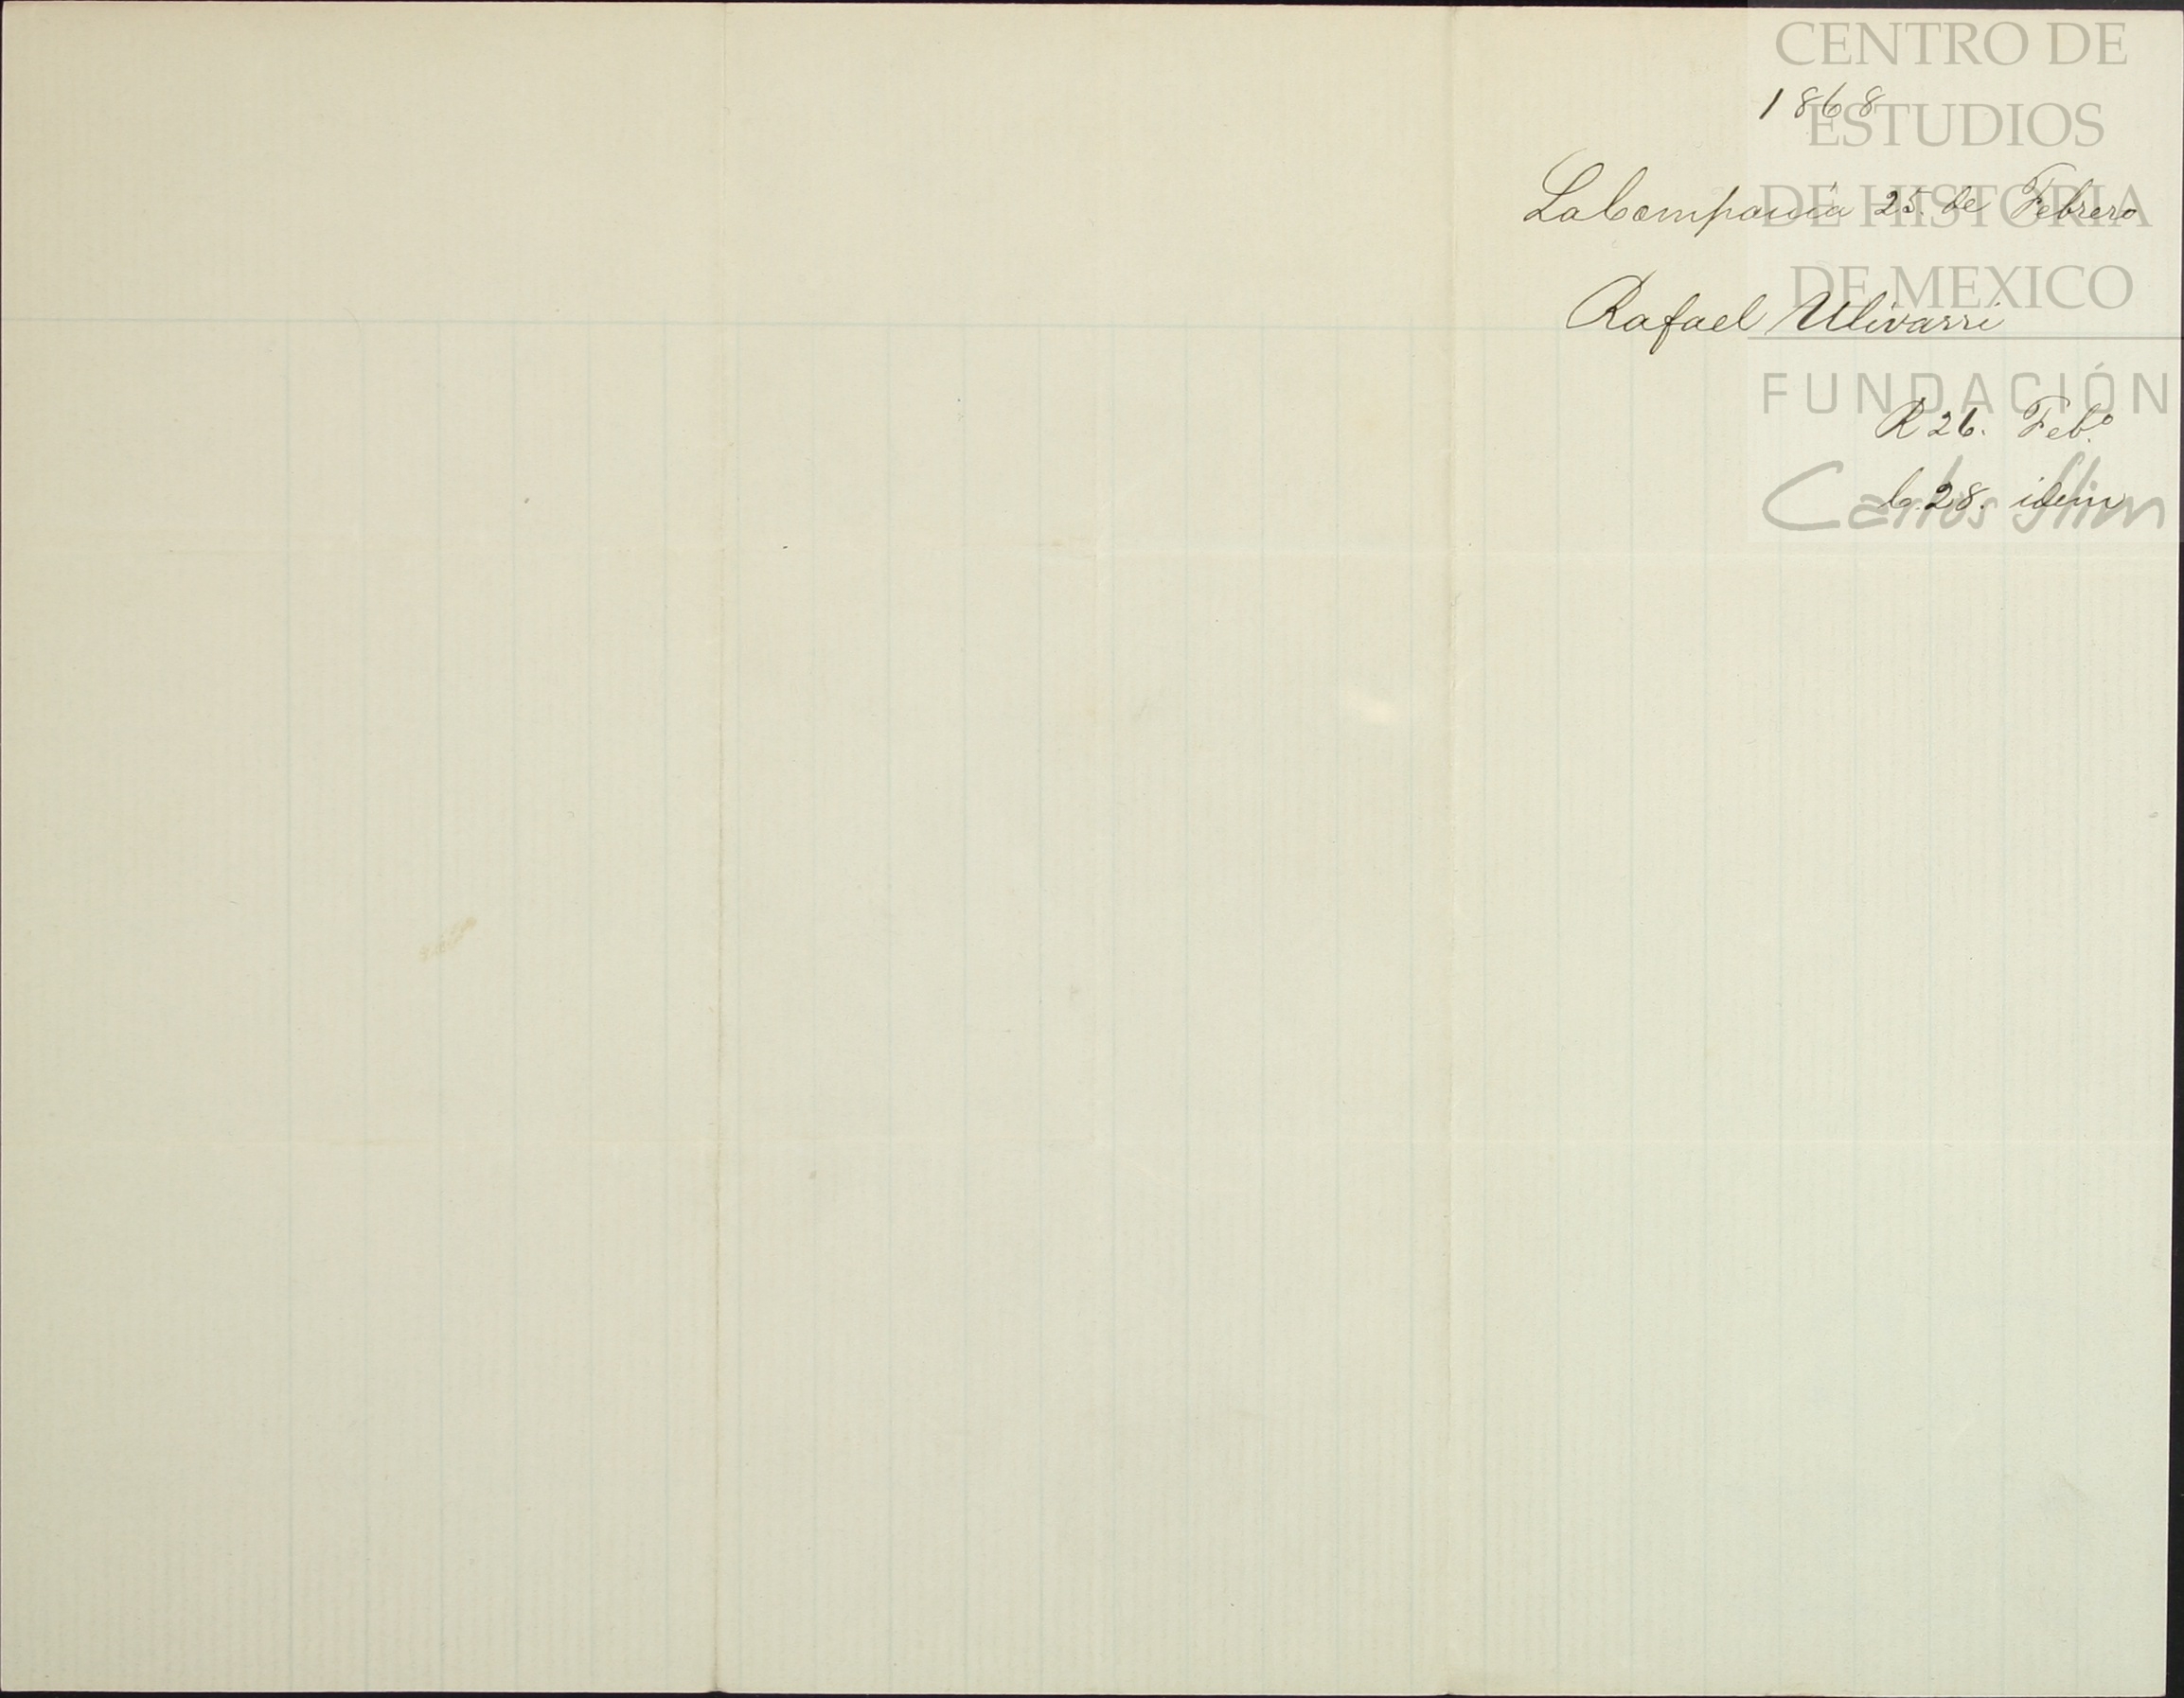 CENTRO DE
ESTUDIOS
DE HISTORIA
DE MEXICO
FUNDACIÓN
Carlos Slim
1868
La Compañia 25. de Febrero
Rafael Ulivarri
R 26. Feb.º
C. 28. idem